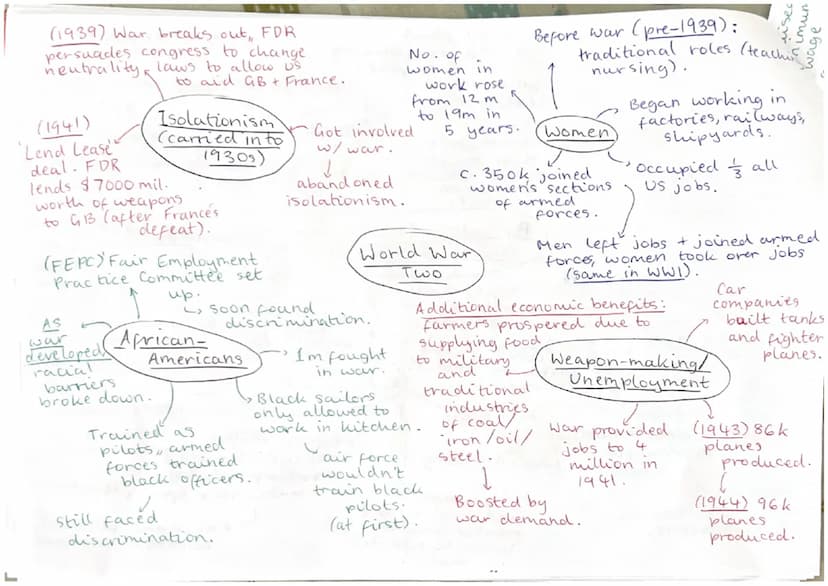 (1939) War breaks out, FDR
persuades congress to change
neutrality laws to allow US
to aid GB + France.
Isolationism
(carried into
1930s)
(1941)
'Lend Lease'
deal. FDR
lends $7000 mil.
worth of weapons
to GB (after France's
defeat).
Got involved
w/ war.
abandoned
isolationism.
No. of
women in
work rose
from 12m
to 19m in
5 years.
Before war (pre-1939):
traditional roles (teachin
nursing).
Women
Began working in
factories, railways,
shipyards.
c. 350k joined
women's sections
of armed
forces.
Occupied 1/3 all
US jobs.
Men left jobs + joined armed
forces, women took over jobs
(same in WW1).
nimum
wage
World War
Two
(FEPC) Fair Employment
Practice Committee set
up.
soon found
discrimination.
African-
Americans
As
war
developed,
racial
barriers
broke down.
1m fought
in war.
Black sailors
only allowed to
work in kitchen.
air force
wouldn't
train black
pilots.
(at first).
Trained as
pilots, armed
forces trained
black officers.
still faced
discrimination.
Additional economic benefits:
farmers prospered due to
supplying food
to military
and
traditional
industries
of coal/
iron/oil/
steel.
Boosted by
war demand.
Weapon-making/
Unemployment
Car
companies
built tanks
and fighter
planes.
War provided
jobs to 4
million in
1941.
(1943) 86k
planes
produced.
(1944) 96k
planes
produced.